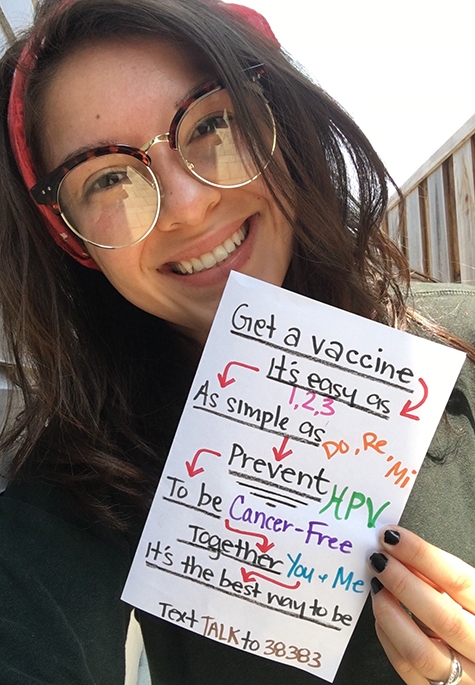 Get a vaccine
It's easy as
1,2,3
As simple as
Do, Re, Mi
Prevent
HPV
To be Cancer-Free
Together You + Me
It's the best way to be
Text TALK to 38383